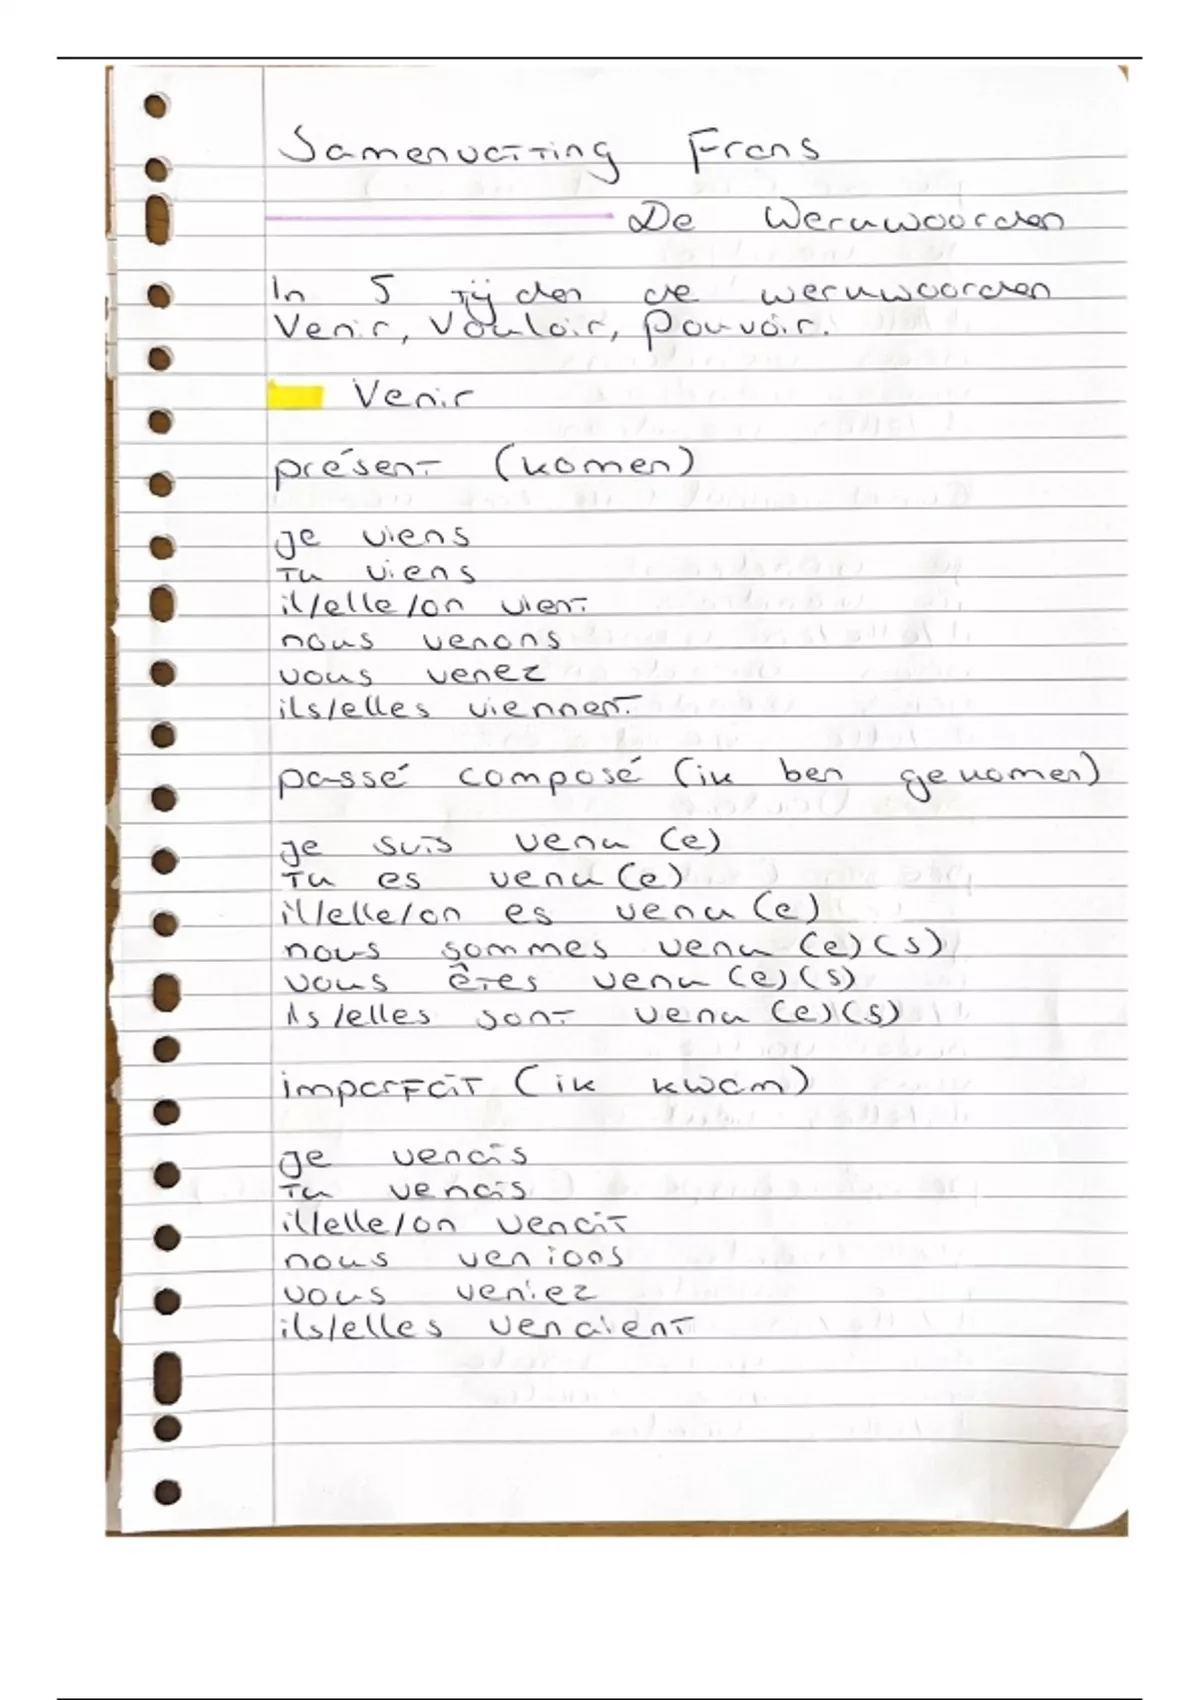 Samenvatting Frans
De Werkwoorden
In 5 tijden de werkwoorden
Venir, Vouloir, Pouvoir.
Venir
présent (komen)
je viens
Tu viens
il/elle/on vient
nous venons
vous venez
ils/elles viennent
passé composé (ik ben gekomen)
je suis venu (e)
Tu es venu (e)
il/elle/on es venu (e)
nous sommes venu (e) (s)
vous êtes venu (e) (s)
ils/elles sont venu (e) (s)
imparfait (ik kwam)
je venais
Tu venais
il/elle/on venait
nous venions
vous veniez
ils/elles venaient